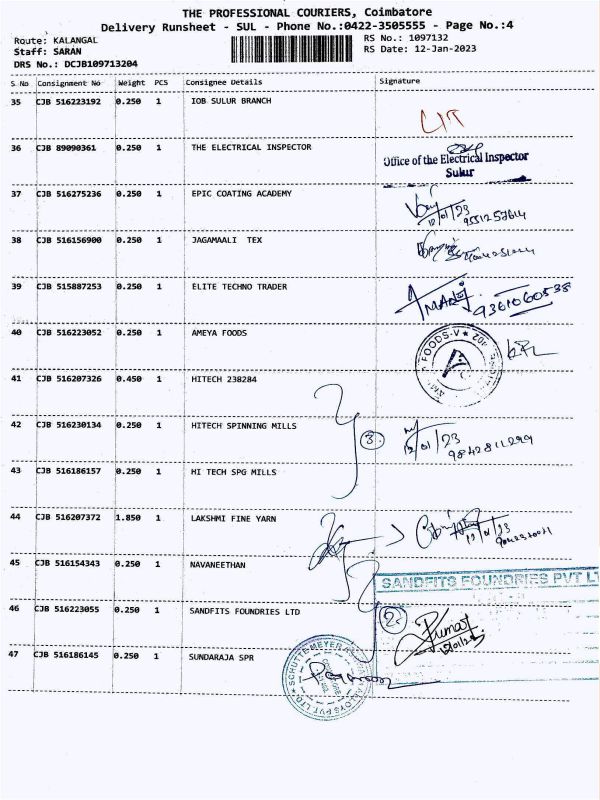 THE PROFESSIONAL COURIERS, Coimbatore
Delivery Runsheet - SUL - Phone No.:0422-3505555 - Page No.:4
Route: KALANGAL
Staff: SARAN
DRS No.: DCJB109713204
RS No.: 1097132
RS Date: 12-Jan-2023
S No Consignment No Weight PCS Consignee Details Signature
35 CJB 516223192 0.250 1 IOB SULUR BRANCH
36 CJB 89090361 0.250 1 THE ELECTRICAL INSPECTOR
Office of the Electrical Inspector
Sulur
37 CJB 516275236 0.250 1 EPIC COATING ACADEMY
12/01/23
38 CJB 516156900 0.250 1 JAGAMAALI TEX
39 CJB 515887253 0.250 1 ELITE TECHNO TRADER
9361060538
40 CJB 516223052 0.250 1 AMEYA FOODS
FOODS-V
41 CJB 516207326 0.450 1 HITECH 238284
42 CJB 516230134 0.250 1 HITECH SPINNING MILLS
3.
12/01/23
9842811299
43 CJB 516186157 0.250 1 HI TECH SPG MILLS
44 CJB 516207372 1.850 1 LAKSHMI FINE YARN
45 CJB 516154343 0.250 1 NAVANEETHAN
SANDFITS FOUNDRIES PVT LT
46 CJB 516223055 0.250 1 SANDFITS FOUNDRIES LTD
2.
Kumar
47 CJB 516186145 0.250 1 SUNDARAJA SPR
SCHUTTE MEYER
ALLOYS PVT LTD